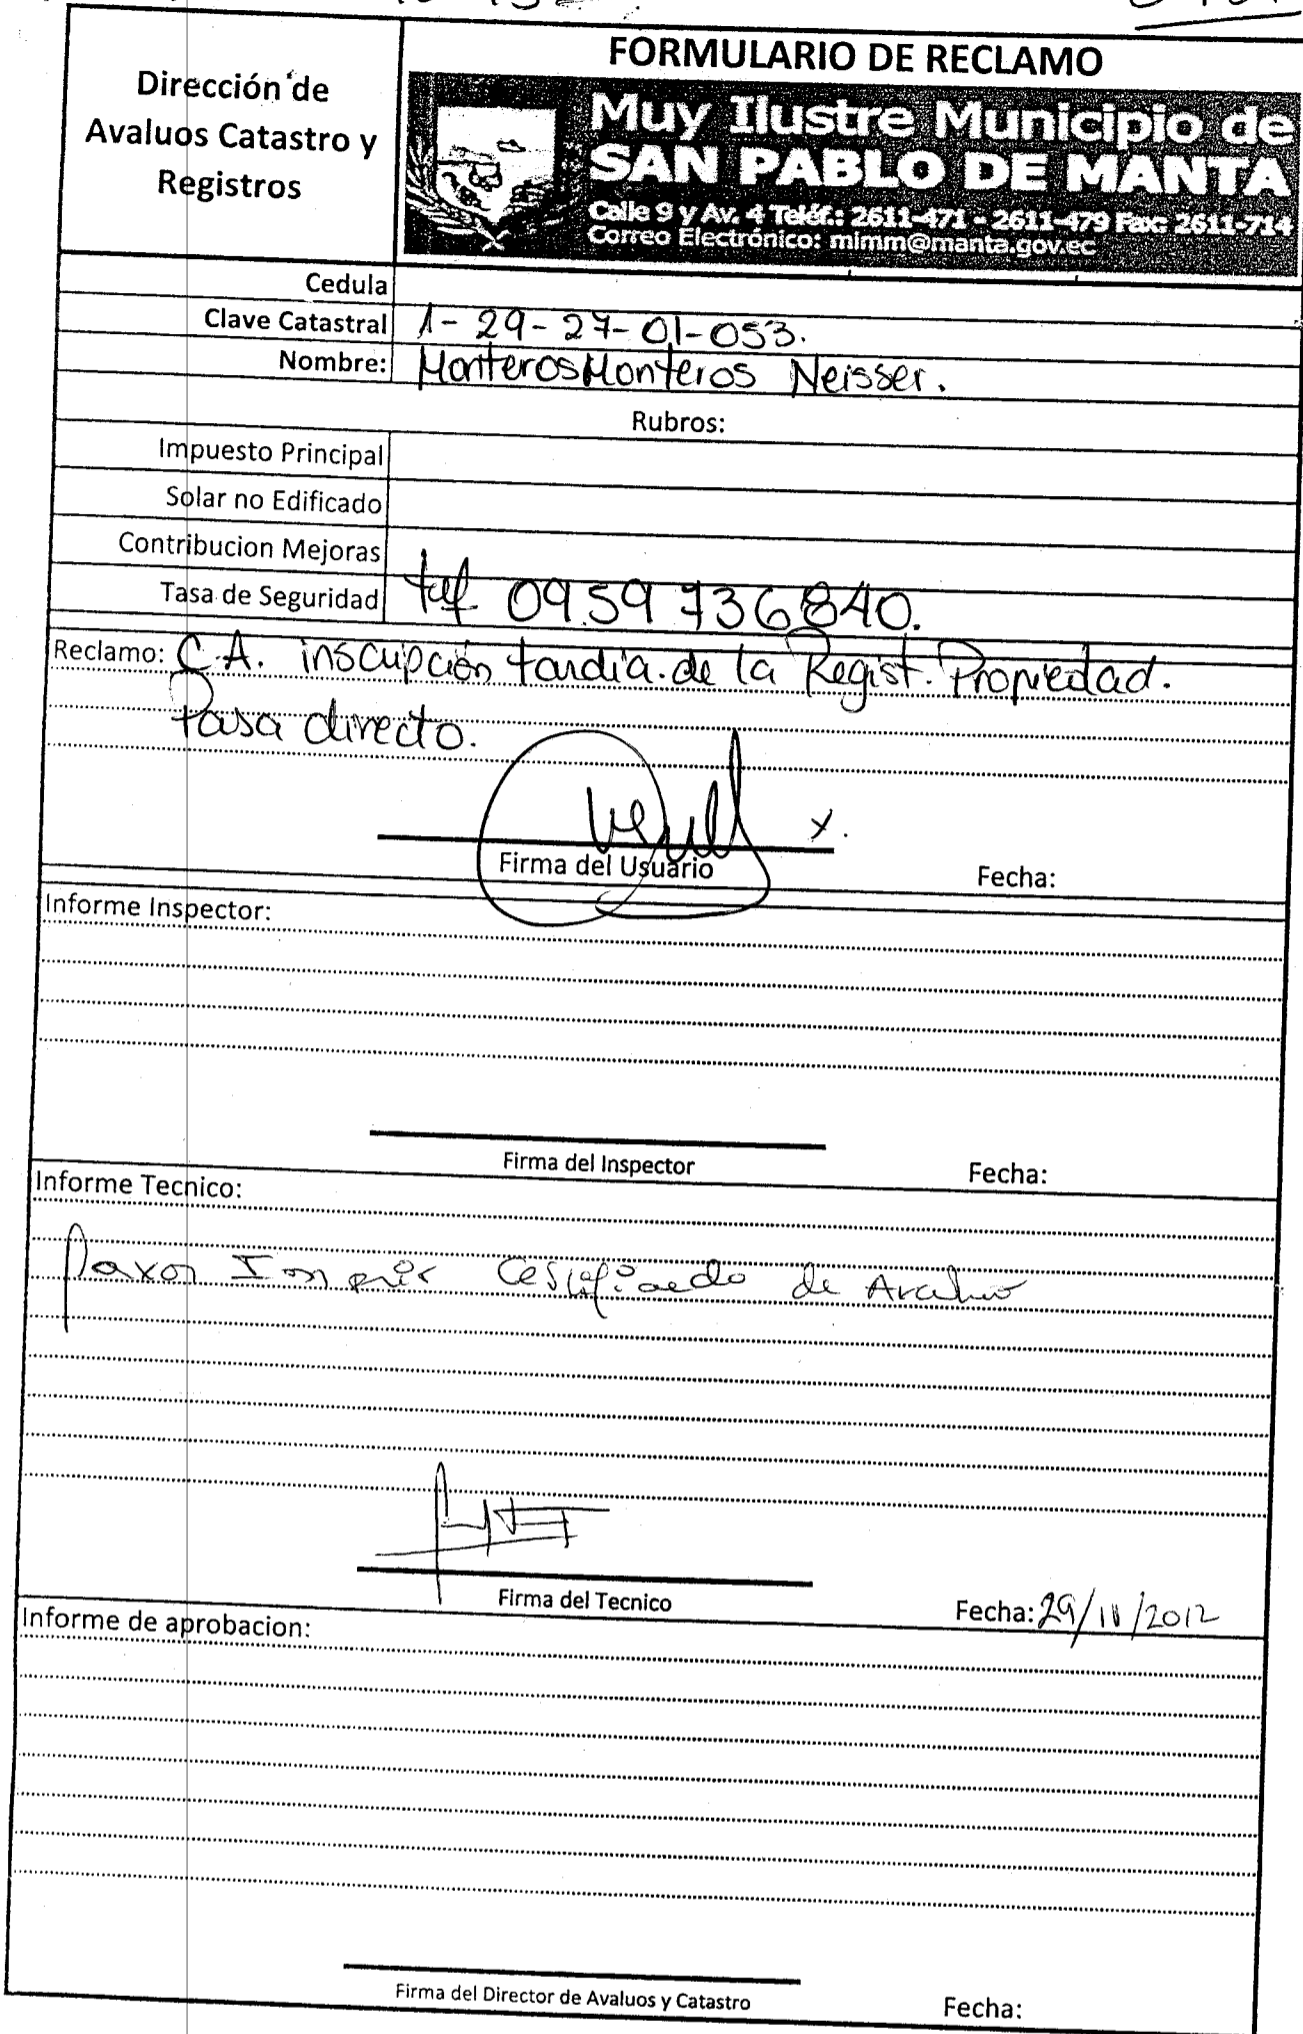 FORMULARIO DE RECLAMO
Dirección de
Avaluos Catastro y
Registros
Muy Ilustre Municipio de
SAN PABLO DE MANTA
Calle 9 y Av. 4 Teléf.: 2611-471 - 2611-479 Fax: 2611-714
Correo Electrónico: mimm@manta.gov.ec
Cedula
Clave Catastral 1-29-27-01-053.
Nombre: Monteros Monteros Neisser.
Rubros:
Impuesto Principal
Solar no Edificado
Contribucion Mejoras
Tasa de Seguridad telf 0959736840.
Reclamo: C.A. inscripción tardia de la Regist. Propiedad.
Pasa directo.
x.
Firma del Usuario Fecha:
Informe Inspector:
Firma del Inspector Fecha:
Informe Tecnico:
Favor Certificado de Avaluo
Firma del Tecnico Fecha: 29/11/2012
Informe de aprobacion:
Firma del Director de Avaluos y Catastro Fecha: